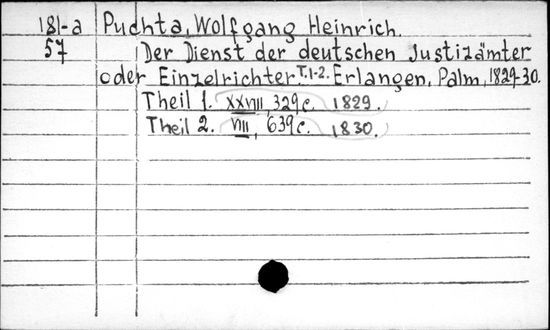 181-a Puchta, Wolfgang Heinrich.
57 Der Dienst der deutschen Justizämter
oder Einzelrichter T.1-2. Erlangen, Palm, 1829-30.
Theil 1. XXVIII, 329 c. 1829.
Theil 2. VIII, 639 c. 1830.